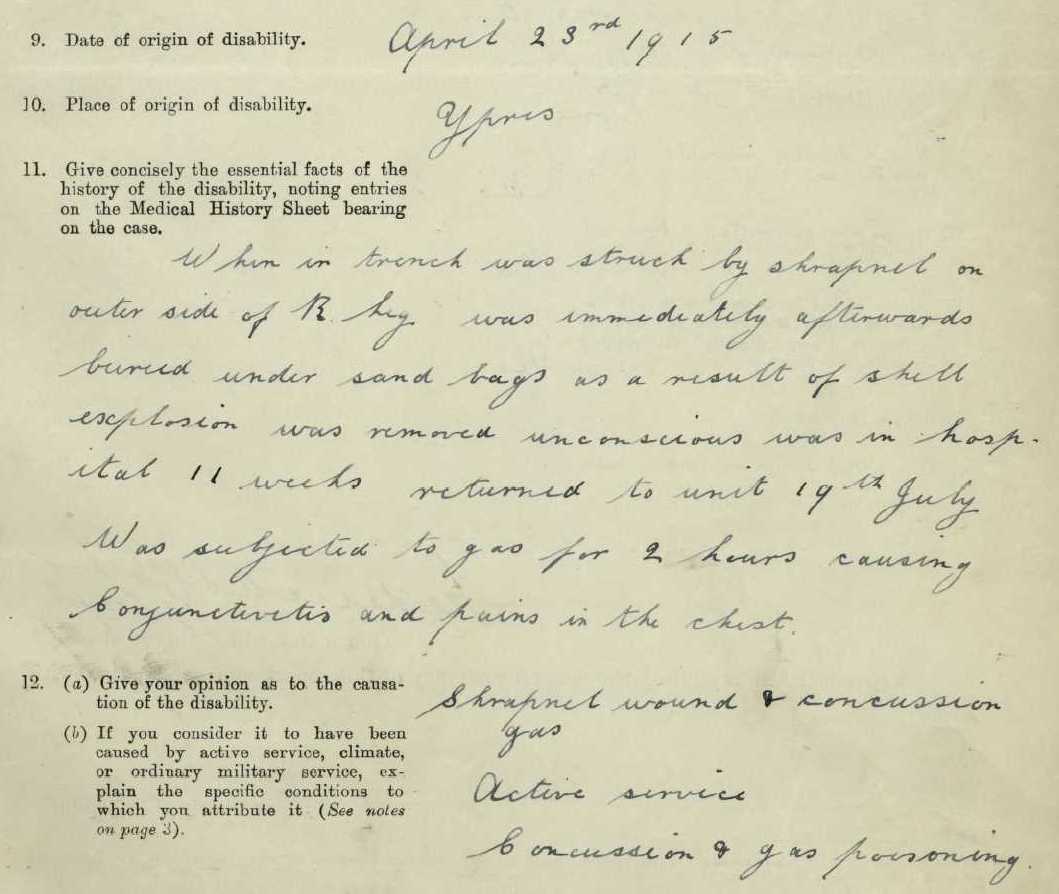 9. Date of origin of disability. April 23rd 1915
10. Place of origin of disability. Ypres
11. Give concisely the essential facts of the
history of the disability, noting entries
on the Medical History Sheet bearing
on the case.
When in trench was struck by shrapnel on
outer side of R. leg was immediately afterwards
buried under sand bags as a result of shell
explosion was removed unconscious was in hosp-
ital 11 weeks returned to unit 19th July
Was subjected to gas for 2 hours causing
Conjunctivitis and pains in the chest.
12. (a) Give your opinion as to the causa-
tion of the disability.
Shrapnel wound & concussion
gas
(b) If you consider it to have been
caused by active service, climate,
or ordinary military service, ex-
plain the specific conditions to
which you attribute it (See notes
on page 3).
Active service
Concussion & gas poisoning.